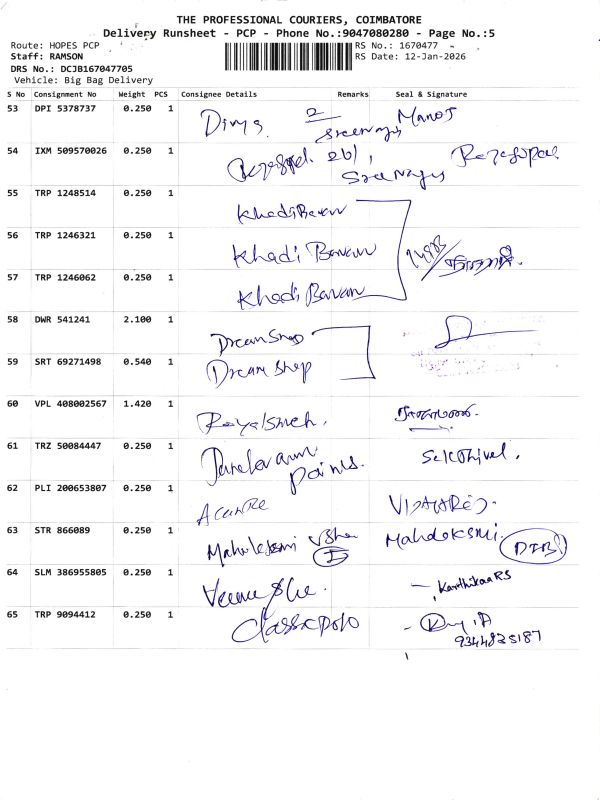 THE PROFESSIONAL COURIERS, COIMBATORE
Delivery Runsheet - PCP - Phone No.:9047080280 - Page No.:5
Route: HOPES PCP RS No.: 1670477
Staff: RAMSON RS Date: 12-Jan-2026
DRS No.: DCJB167047705
Vehicle: Big Bag Delivery
S No Consignment No Weight PCS Consignee Details Remarks Seal & Signature
53 DPI 5378737 0.250 1 Divya 2 Manoj
Sreenagu
54 IXM 509570026 0.250 1 261, Rajagopal
Sreenagu
55 TRP 1248514 0.250 1 Khadi Bavan
56 TRP 1246321 0.250 1 Khadi Bavan
57 TRP 1246062 0.250 1 Khadi Bavan
58 DWR 541241 2.100 1 Dream Shop
59 SRT 69271498 0.540 1 Dream Shop
60 VPL 408002567 1.420 1
61 TRZ 50084447 0.250 1 Selcthivel.
62 PLI 200653807 0.250 1
63 STR 866089 0.250 1 Mahaleksmi Usha Mahdeksmi.
64 SLM 386955805 0.250 1 Karthikaa RS
65 TRP 9094412 0.250 1 Classic polo
9344825187